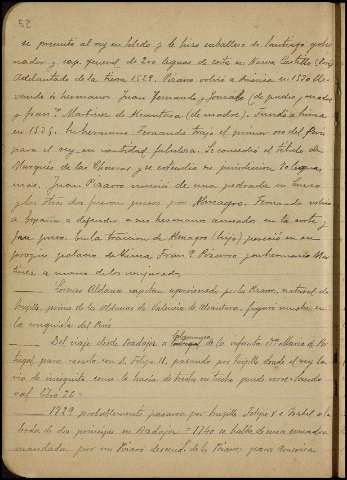 52
se presentó al rey en Toledo y le hizo caballero de Santiago, gober
nador y cap. general de 200 leguas de costa en Nueva Castilla
Adelantado de la tierra 1529. Pizarro volvió a América en 1530 lle
vando hermanos Juan Fernando y Gonzalo (de padre y madre)
y Fran.º Martinez de Alcantara (de madre). Fundó a Lima
en 1535. Su hermano Fernando trajo el primer oro del Perú
para el rey en cantidad fabulosa. Se concedió el titulo de
Marqués de las Charcas y se extendió su jurisdiccion 70 leguas
mas. Juan Pizarro murió de una pedrada en Cuzco
y los otros dos fueron presos por Almagro. Fernando volvió
a España a defender a sus hermanos acusados en la corte y
fue preso. En la traicion de Almagro (hijo) pereció en su
propio palacio de Lima Fran.º Pizarro y su hermano Mar
tinez a manos de los conjurados.
Lorenzo Aldana capitan apasionado por los Pizarro, natural de
Trujillo, primo de los Aldanas de Valencia de Alcantara, figuró mucho en
la conquista del Perú
Del viaje desde Badajoz a de la infanta Dª Maria de Por
tugal para casarla con D. Felipe II, pasando por Trujillo donde el rey la
vió de incógnito como lo hacia de trecho en trecho puede verse Sando
val libro 26
1729 probablemente pasaron por Trujillo Felipe V e Isabel a la
boda de dos principes en Badajoz = 1740 se habla de una
mandada por un Pizarro descend. de los Pizarros para America